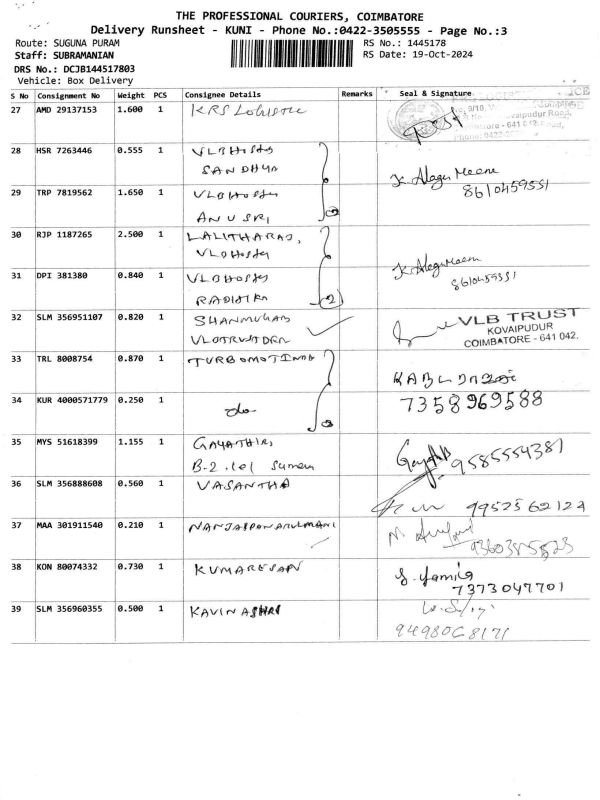 THE PROFESSIONAL COURIERS, COIMBATORE
Delivery Runsheet - KUNI - Phone No.:0422-3505555 - Page No.:3
Route: SUGUNA PURAM
RS No.: 1445178
Staff: SUBRAMANIAN
RS Date: 19-Oct-2024
DRS No.: DCJB144517803
Vehicle: Box Delivery
S No Consignment No Weight PCS Consignee Details Remarks Seal & Signature
27 AMD 29137153 1.600 1 KRS
641 0
28 HSR 7263446 0.555 1 VLB Hostey
SANDHYA
29 TRP 7819562 1.650 1 VLB Hostey
ANUSRI
K. Alagu Meena
8610459551
30 RJP 1187265 2.500 1 LALITHARAJ,
VLB Hostey
31 DPI 381380 0.840 1 VLB Hostey
RADHIKA 2
K. Alagu Meena
8610459551
32 SLM 356951107 0.820 1 SHANMUGAM
VLB TRUST
KOVAIPUDUR
COIMBATORE - 641 042.
33 TRL 8008754 0.870 1 TURBOMOTINDO
34 KUR 4000571779 0.250 1 do
7358969588
35 MYS 51618399 1.155 1 GAYATHIRI
B-2
9585554381
36 SLM 356888608 0.560 1 VASANTHA
9952562122
37 MAA 301911540 0.210 1
9360385523
38 KON 80074332 0.730 1 KUMARESAN
S. Yamia
7373047701
39 SLM 356960355 0.500 1 KAVINASHRI
9498068171